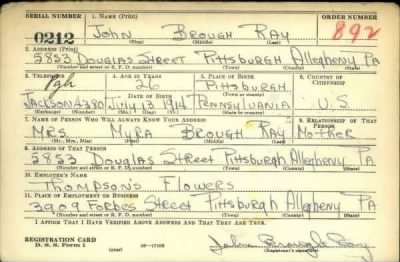 SERIAL NUMBER 1. NAME (Print) ORDER NUMBER
0212 John Brough Ray 892
(First) (Middle) (Last)
2. ADDRESS (Print)
5853 Douglas Street Pittsburgh Allegheny Pa
(Number and street or R. F. D. number) (Town) (County) (State)
3. TELEPHONE 4. AGE IN YEARS 5. PLACE OF BIRTH 6. COUNTRY OF CITIZENSHIP
Pgh 26 Pittsburgh
DATE OF BIRTH (Town or county)
Jackson 4380 July 13 1914 Pennsylvania U.S.
(Exchange) (No.) (Mo.) (Day) (Yr.) (State or country)
7. NAME OF PERSON WHO WILL ALWAYS KNOW YOUR ADDRESS 8. RELATIONSHIP OF THAT PERSON
Mrs. Myra Brough Ray Mother
(Mr., Mrs., Miss) (First) (Middle) (Last)
9. ADDRESS OF THAT PERSON
5853 Douglas Street Pittsburgh Allegheny Pa
(Number and street or R. F. D. number) (Town) (County) (State)
10. EMPLOYER'S NAME
Thompson's Flowers
11. PLACE OF EMPLOYMENT OR BUSINESS
3909 Forbes Street Pittsburgh Allegheny Pa
(Number and street or R. F. D. number) (Town) (County) (State)
I AFFIRM THAT I HAVE VERIFIED ABOVE ANSWERS AND THAT THEY ARE TRUE.
REGISTRATION CARD
D. S. S. Form 1 (over) 16—17105 John Brough Ray
(Registrant's signature)